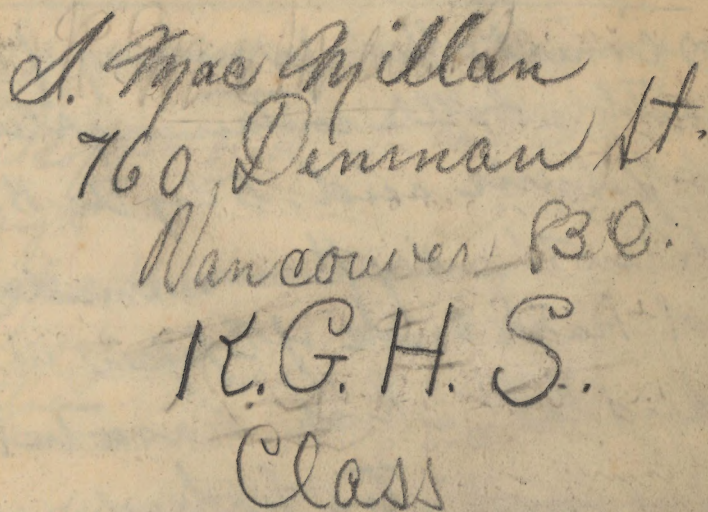 S. Mac Millan
760 Denman St.
Vancouver B C.
K. G. H. S.
Class